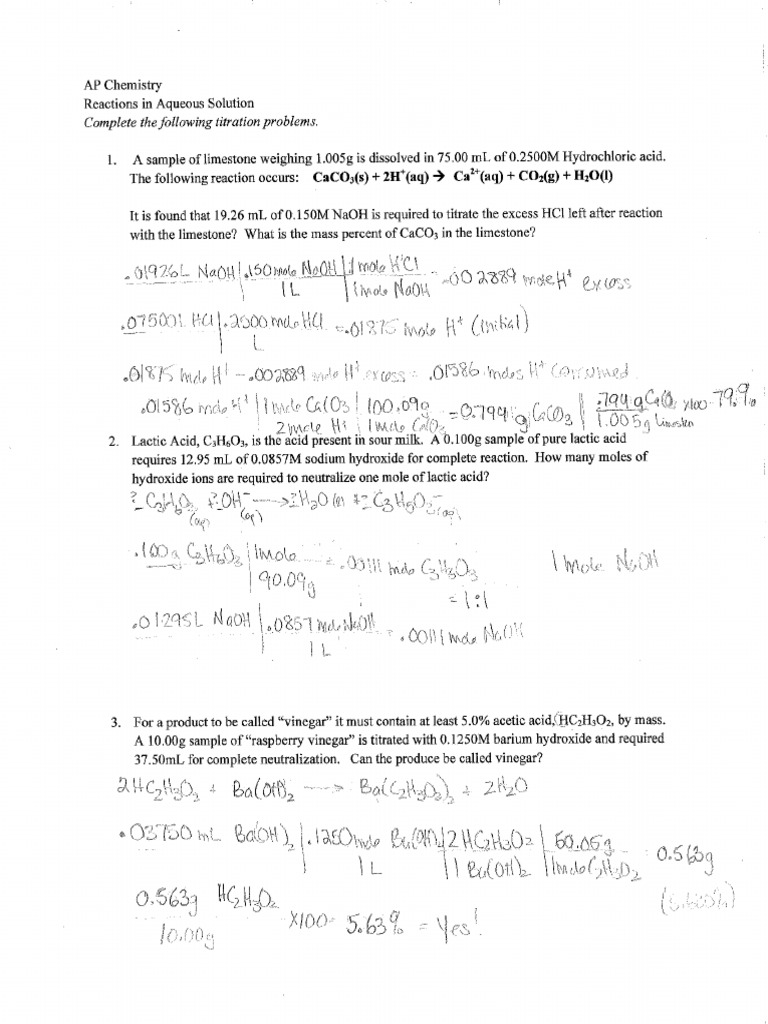 AP Chemistry
Reactions in Aqueous Solution
Complete the following titration problems.
1. A sample of limestone weighing 1.005g is dissolved in 75.00 mL of 0.2500M Hydrochloric acid.
The following reaction occurs: CaCO₃(s) + 2H⁺(aq) → Ca²⁺(aq) + CO₂(g) + H₂O(l)
It is found that 19.26 mL of 0.150M NaOH is required to titrate the excess HCl left after reaction
with the limestone? What is the mass percent of CaCO₃ in the limestone?
.01926L NaOH | .150 mole NaOH | 1 mole HCl = .002889 mole H⁺ excess
1 L | 1 mole NaOH
.07500L HCl | .2500 mole HCl = .01875 mole H⁺ (initial)
L
.01875 mole H⁺ - .002889 mole H⁺ excess = .01586 moles H⁺ consumed
.01586 mole H⁺ | 1 mole CaCO3 | 100.09g = 0.794 g CaCO3 | .794 g CaCO3 x100 79.9%
2 mole H⁺ | 1 mole CaCO3 | 1.005g limestone
2. Lactic Acid, C₃H₆O₃, is the acid present in sour milk. A 0.100g sample of pure lactic acid
requires 12.95 mL of 0.0857M sodium hydroxide for complete reaction. How many moles of
hydroxide ions are required to neutralize one mole of lactic acid?
? C₃H₆O₃ (aq) + ? OH⁻ (aq) → ? H₂O (l) + ? C₃H₅O₃⁻ (aq)
.100g C₃H₆O₃ | 1 mole = .00111 mole C₃H₆O₃
90.09g
1 mole NaOH
= 1:1
.01295L NaOH | .0857 mole NaOH = .00111 mole NaOH
1 L
3. For a product to be called “vinegar” it must contain at least 5.0% acetic acid, HC₂H₃O₂, by mass.
A 10.00g sample of “raspberry vinegar” is titrated with 0.1250M barium hydroxide and required
37.50mL for complete neutralization. Can the produce be called vinegar?
2HC₂H₃O₂ + Ba(OH)₂ → Ba(C₂H₃O₂)₂ + 2H₂O
.03750 mL Ba(OH)₂ | .1250 mole Ba(OH)₂ | 2 HC₂H₃O₂ | 60.05g 0.563g
1 L | 1 Ba(OH)₂ | 1 mole C₂H₃O₂
0.563g HC₂H₃O₂ x100 = 5.63% = Yes!
10.00g